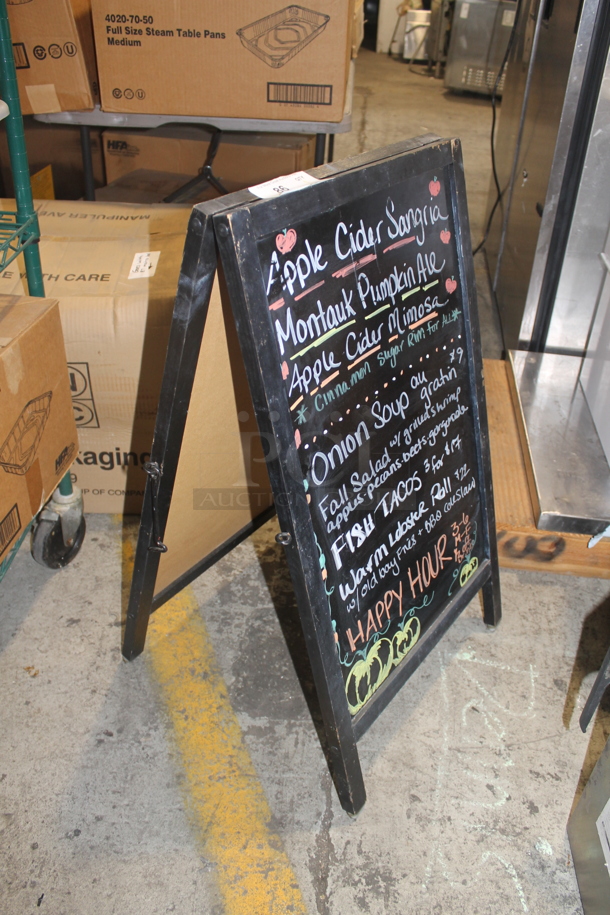 4020-70-50
Full Size Steam Table Pans
Medium
HFA
MANIPULER AVE
E WITH CARE
kaging
HFA
P OF COMPA
86
Apple Cider Sangria
Montauk Pumpkin Ale
Apple Cider Mimosa
* Cinnamon Sugar Rim for All *
Onion Soup au gratin $9
Fall Salad w/ grilled shrimp
apples·pecans·beets·gorgonzola
FISH TACOS 3 for $17
Warm Lobster Roll
w/ old bay Fries + BBQ Coleslaw
HAPPY HOUR 3-6
AUCTION